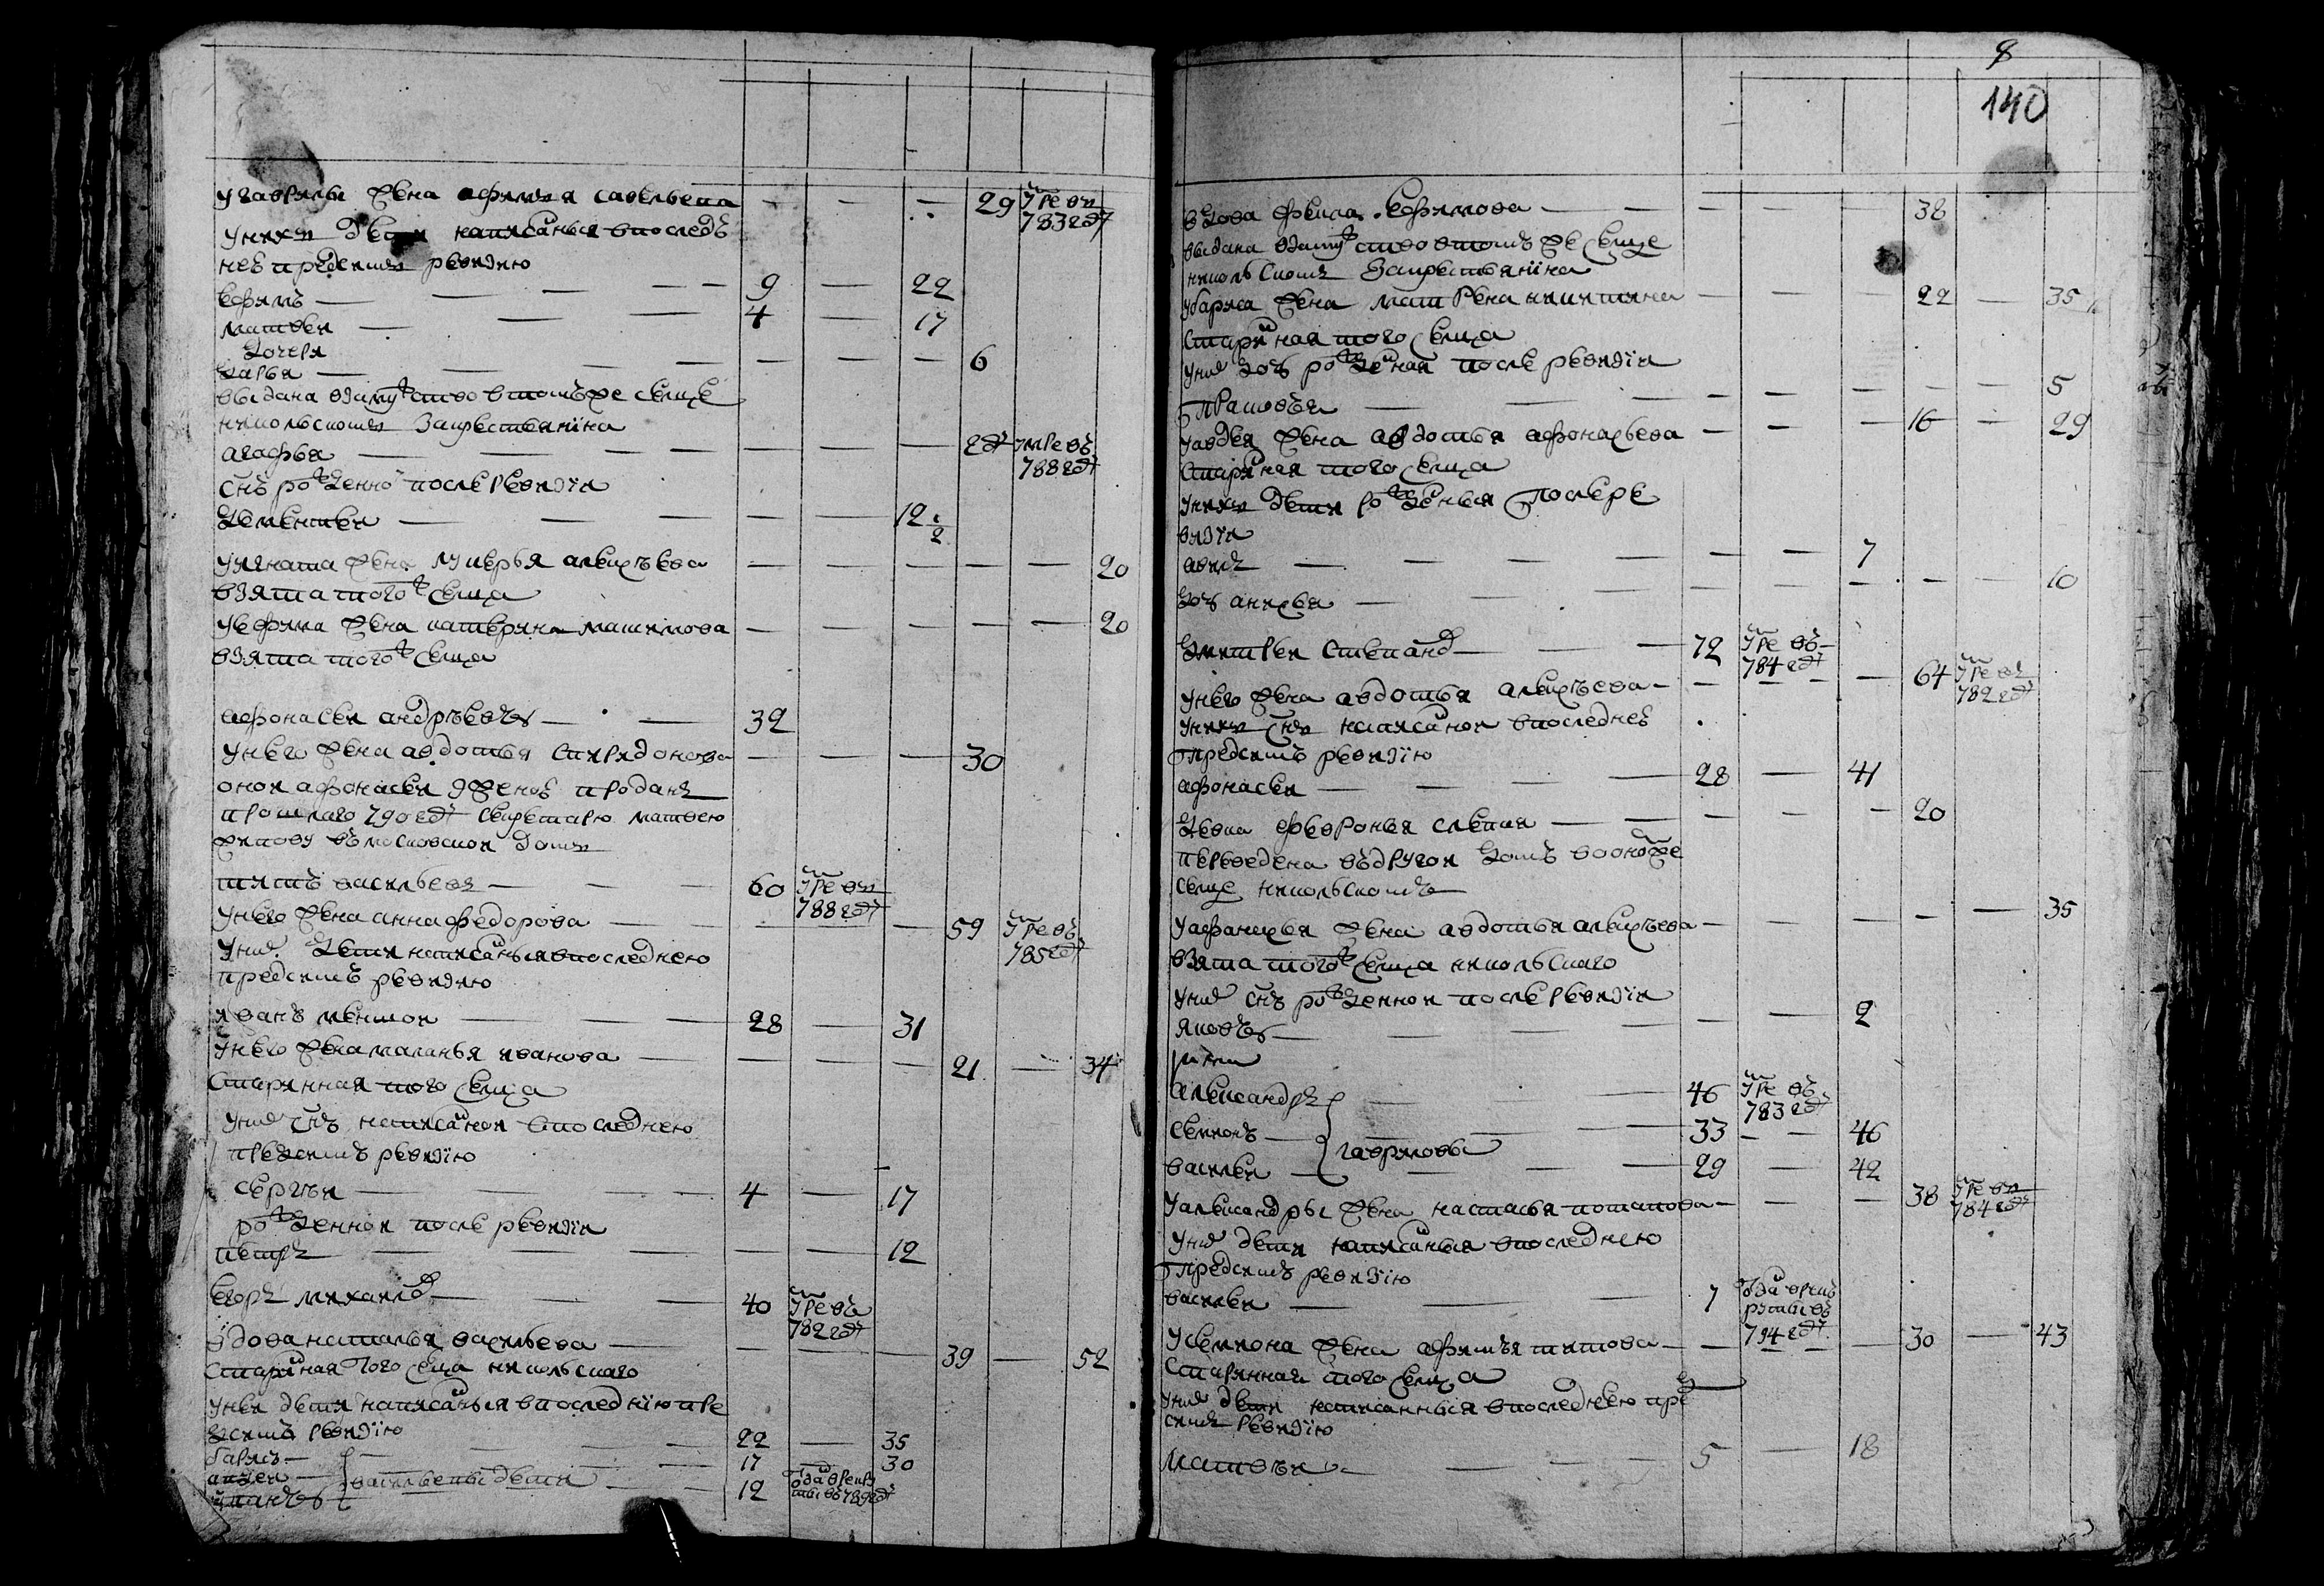 у гаврилы жена афимья савельева — — — 29 умре въ 783 году
у нихъ дети написаныя в последъ
неѣ пред симъ ревизию
ефимъ — 9 — 22
матвеи — 4 — 17
дочери
дарья — 6
выдана взамужство в томъ же селце
николскомъ за крестьянина
агафья — 2 году умре въ 788 году
снъ рожденной после ревизiи
дементеи — 12
у игната жена лукерья алексѣева — 20
взята того ж селца
у ефима жена катерина максимова — 20
взята того ж селца
афонасеи андрѣевъ — 39
у него жена авдотья спиридонова — 30
оной афонасеи з женоѣ проданъ
прошлаго 790 году секретарю матвею
китову въ московской домъ
титъ васильевъ — 60 умре въ 788 году
у него жена анна федорова — 59 умре въ 785 году
у них дети написаныя в последнею
пред симъ ревизию
иванъ меншой — 28 — 31
у него жена маланья иванова — 21 — 34
старинная того селца
у них снъ написаной в последнею
пред симъ ревизiю
сергѣи — 4 — 17
рожденной после ревизiи
петръ — 12
егоръ михаилов — 40 умре въ 782 году
вдова наталья васильева — 39 — 52
стариная того селца николскаго
у неи дети написаныя в последнiю пре
дсимъ ревизiю
барисъ — 22 — 35
авдеи — васильевы дети 17 — 30
иванъ — 12 отдан в рекруты въ 789 году
8
140
вдова фекла ефимова — 38
выдана взамужство в томъ же селце
николскомъ за крестьянiна
у бариса жена матрена никитина — 22 — 35
стариная того селца
у них дочь рожденая после ревизiи
прасковья — 5
у авдея жена авдотья афонасьева — 16 — 29
стариная того селца
у нихъ дети рожденыя после ре
визiи
— 7
дочь анисья — 10
дмитреи степанов — 72 умре въ 784 году
у него жена авдотья алексѣева — 64 умре въ 782 году
у нихъ снъ написаной в последнеѣ
пред симъ ревизiю
афонасеи — 28 — 41
девка февронья слепая — 20
переведена въ другой домъ в оном же
селце николскомъ
у афанасья жена авдотья алексѣева — 35
взята того ж селца николскаго
у них снъ рожденной после ревизiи
яковъ — 2
александръ — 46 умре въ 783 году
семионъ — гавриловы 33 — 46
василеи — 29 — 42
у александры жена настасья потапова — 38 умре въ 784 году
у них дети написаныя в последнею
пред симъ ревизiю
василеи — 7 отдан в рекруты въ 794 году
у семиона жена афимья титова — 30 — 43
старинная того селца
у них дети написанныя в последнею пред
симъ ревизiю
матвѣи — 5 — 18